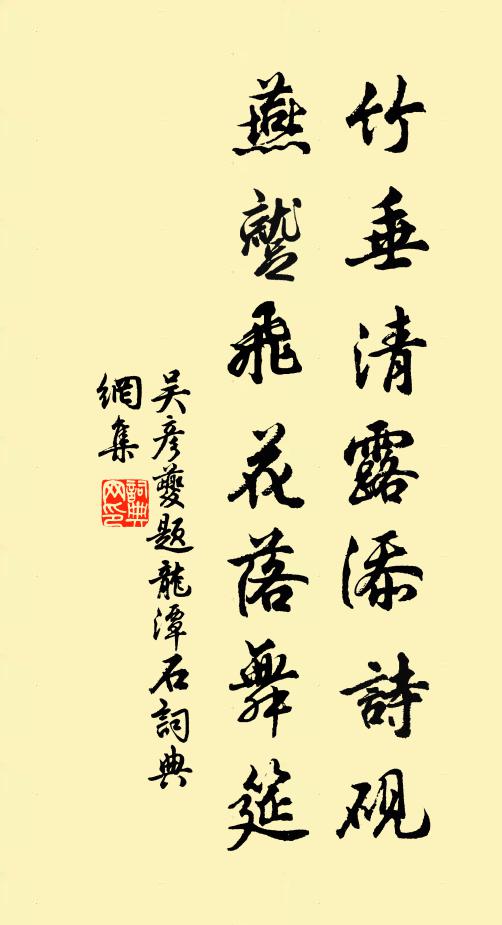 竹垂清露添詩硯
燕蹴飛花落舞筵
吴彦夔題龍潭石詞典
網集
詞典
网印